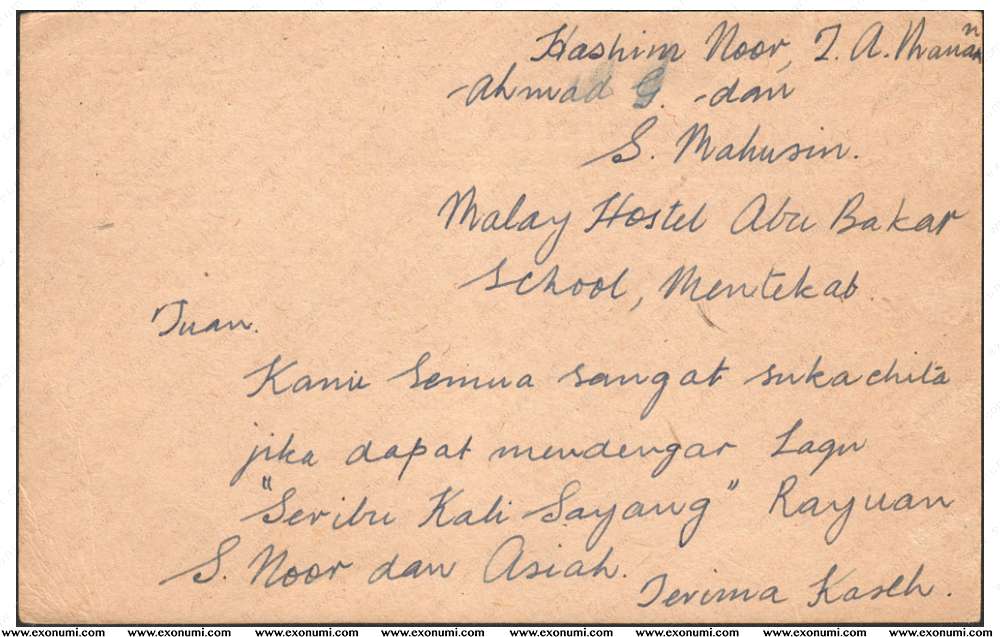 Hashim Noor, I. A. Manan
Ahmad G. dan
S. Mahusin.
Malay Hostel Abu Bakar
School, Mentekab.
Tuan.
Kami Semua sangat sukachita
jika dapat mendengar Lagu
"Seribu Kali Sayang" Rayuan
S. Noor dan Asiah.
Terima Kaseh.
www.exonumi.com www.exonumi.com www.exonumi.com www.exonumi.com www.exonumi.com www.exonumi.com www.exonumi.com www.exonumi.com